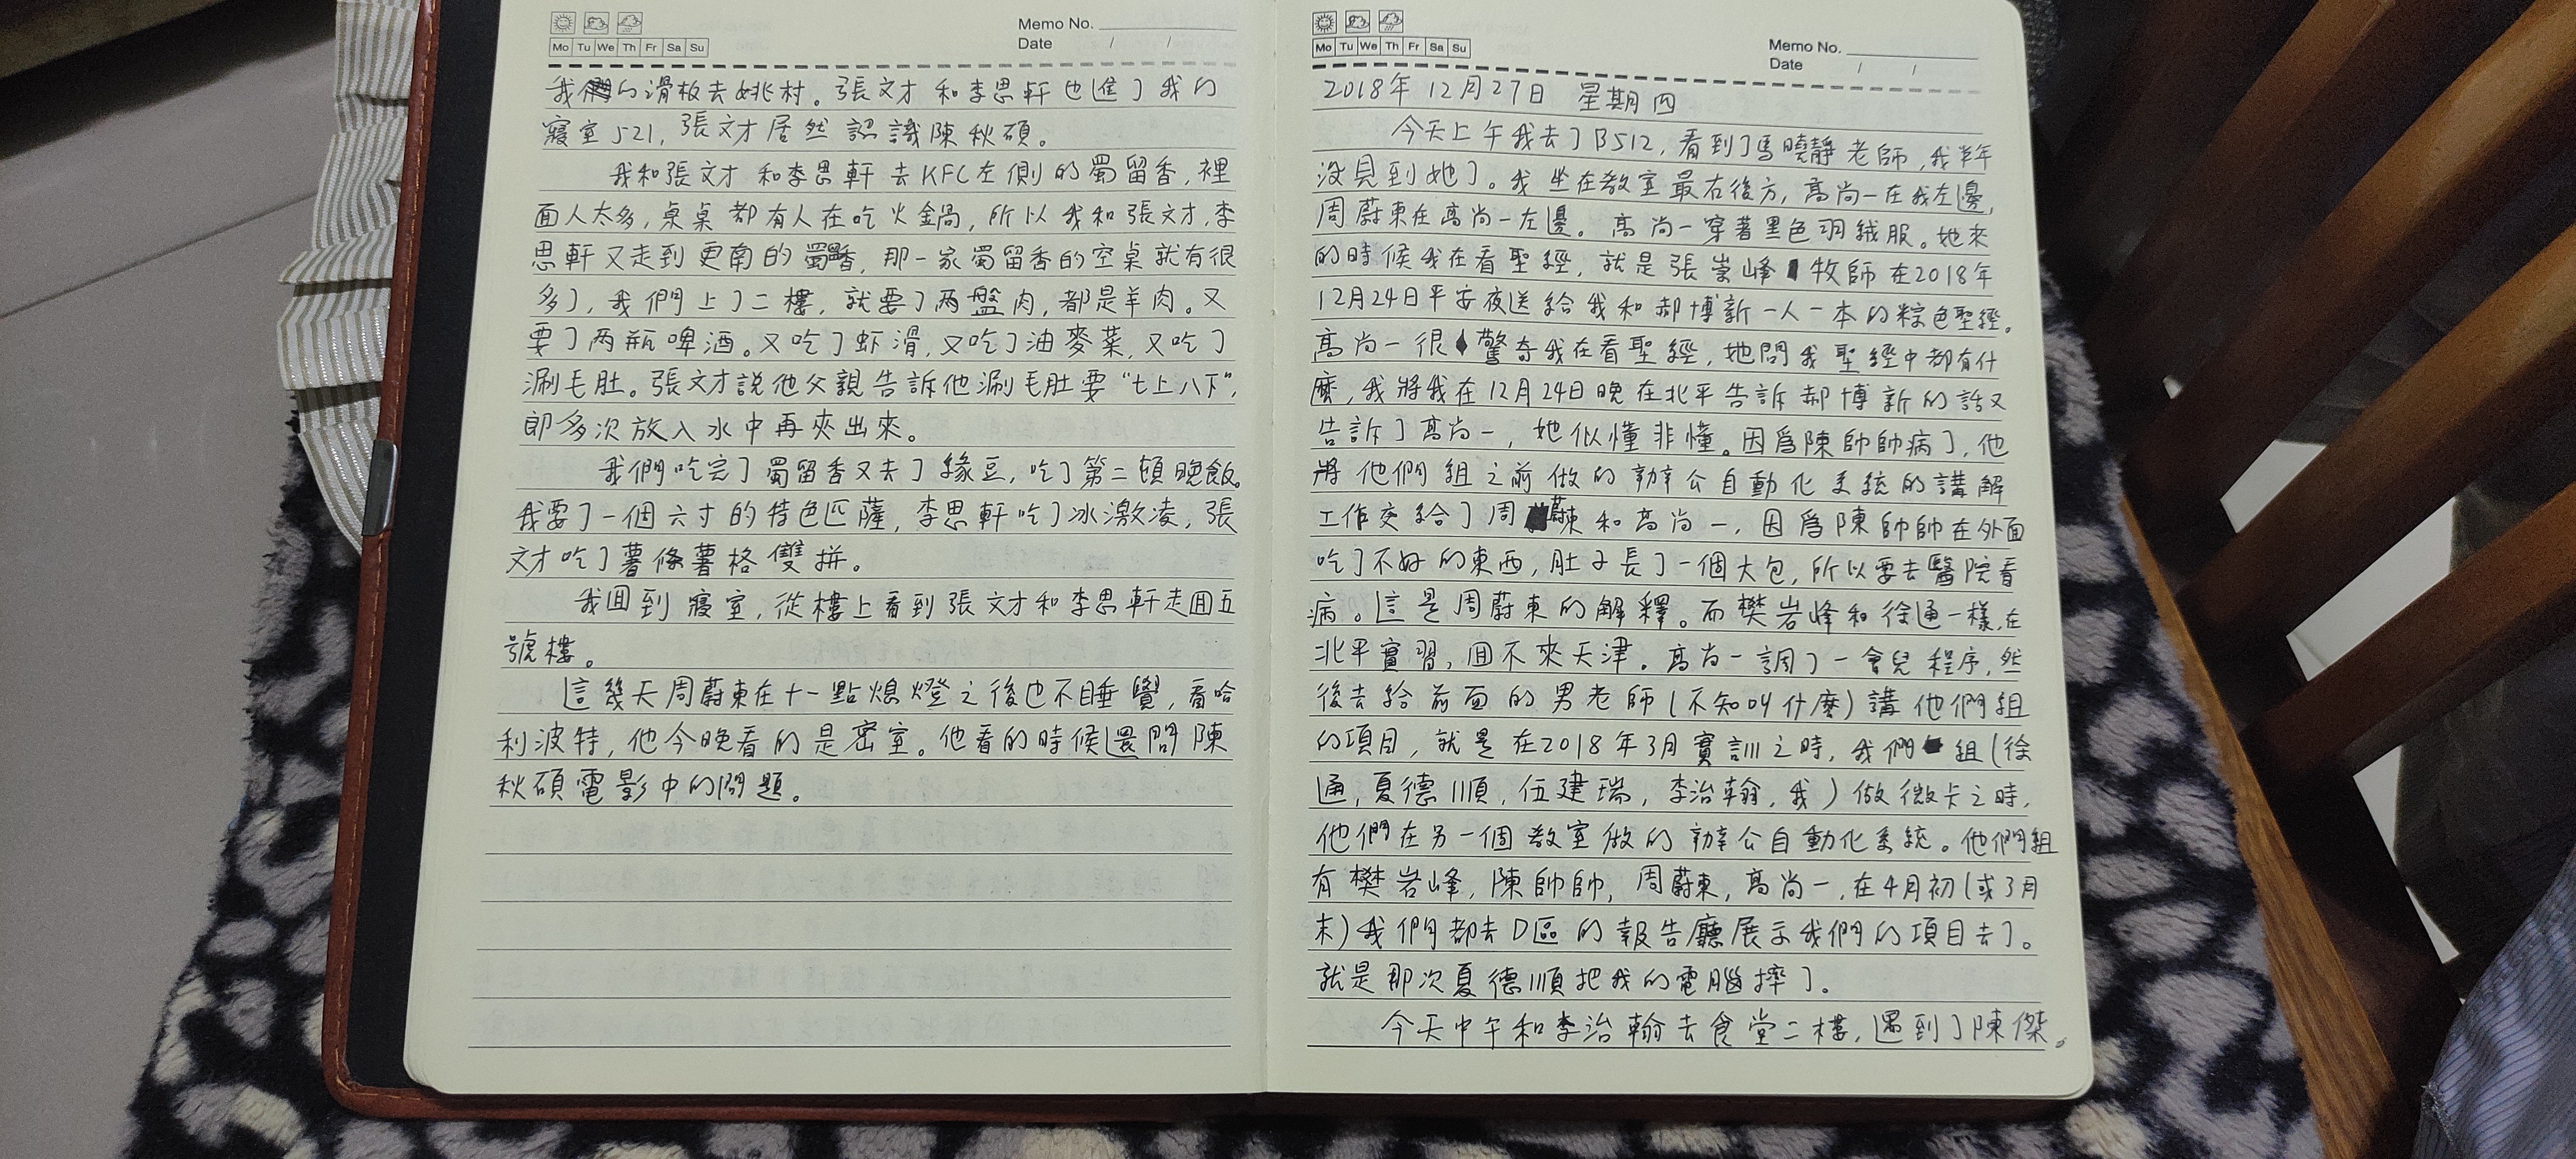 Memo No.
Mo Tu We Th Fr Sa Su
Date / /
我的滑板去姚村。張文才和李思軒也進了我的
寢室521,張文才居然認識陳秋碩。
我和張文才和李思軒去KFC左側的蜀留香,裡
面人太多,桌桌都有人在吃火鍋,所以我和張文才,李
思軒又走到更南的蜀留香,那一家蜀留香的空桌就有很
多了,我們上了二樓,就要了两盤肉,都是羊肉。又
要了两瓶啤酒。又吃了虾滑,又吃了油麥菜,又吃了
涮毛肚。張文才説他父親告訴他涮毛肚要“七上八下”,
即多次放入水中再夾出來。
我們吃完了蜀留香又去了緣豆,吃了第二頓晚飯。
我要了一個六寸的特色匹薩,李思軒吃了冰激凌,張
文才吃了薯條薯格雙拼。
我囬到寢室,從樓上看到張文才和李思軒走囬五
號樓。
這幾天周蔚東在十一點熄燈之後也不睡覺,看哈
利波特,他今晚看的是密室。他看的時候還問陳
秋碩電影中的問題。
Memo No.
Mo Tu We Th Fr Sa Su
Date / /
2018年12月27日 星期四
今天上午我去了B512,看到了馬曉靜老師,我半年
没見到她了。我坐在教室最右後方,高尚一在我左邊,
周蔚東在高尚一左邊。高尚一穿著黑色羽絨服。她來
的時候我在看聖經,就是張崇峰牧師在2018年
12月24日平安夜送給我和郝博新一人一本的粽色聖經。
高尚一很驚奇我在看聖經,她問我聖經中都有什
麽,我將我在12月24日晚在北平告訴郝博新的話又
告訴了高尚一,她似懂非懂。因爲陳帥帥病了,他
將他們組之前做的辦公自動化系統的講解
工作交給了周蔚東和高尚一,因爲陳帥帥在外面
吃了不好的東西,肚子長了一個大包,所以要去醫院看
病。這是周蔚東的解釋。而樊岩峰和徐通一樣,在
北平實習,囬不來天津。高尚一調了一會兒程序,然
後去給前面的男老師(不知叫什麽)講他們組
的項目,就是在2018年3月實訓之時,我們組(徐
通,夏德順,伍建瑞,李治翰,我)做微卡之時,
他們在另一個教室做的辦公自動化系統。他們組
有樊岩峰,陳帥帥,周蔚東,高尚一,在4月初(或3月
末)我們都去D區的報告廳展示我們的項目去了。
就是那次夏德順把我的電腦摔了。
今天中午和李治翰去食堂二樓,遇到了陳傑。